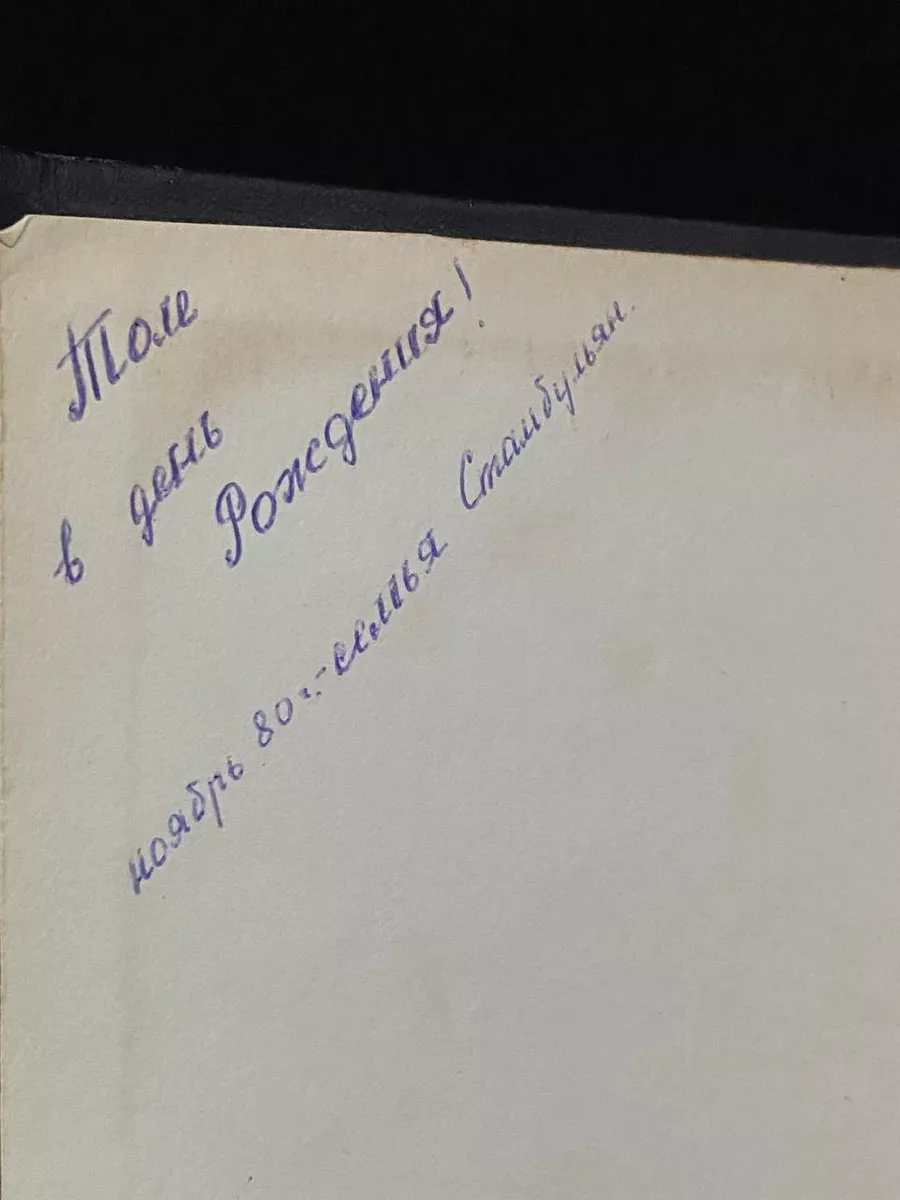 Толе
в день
Рождения!
ноябрь 80 г.-семья Стамбульян.